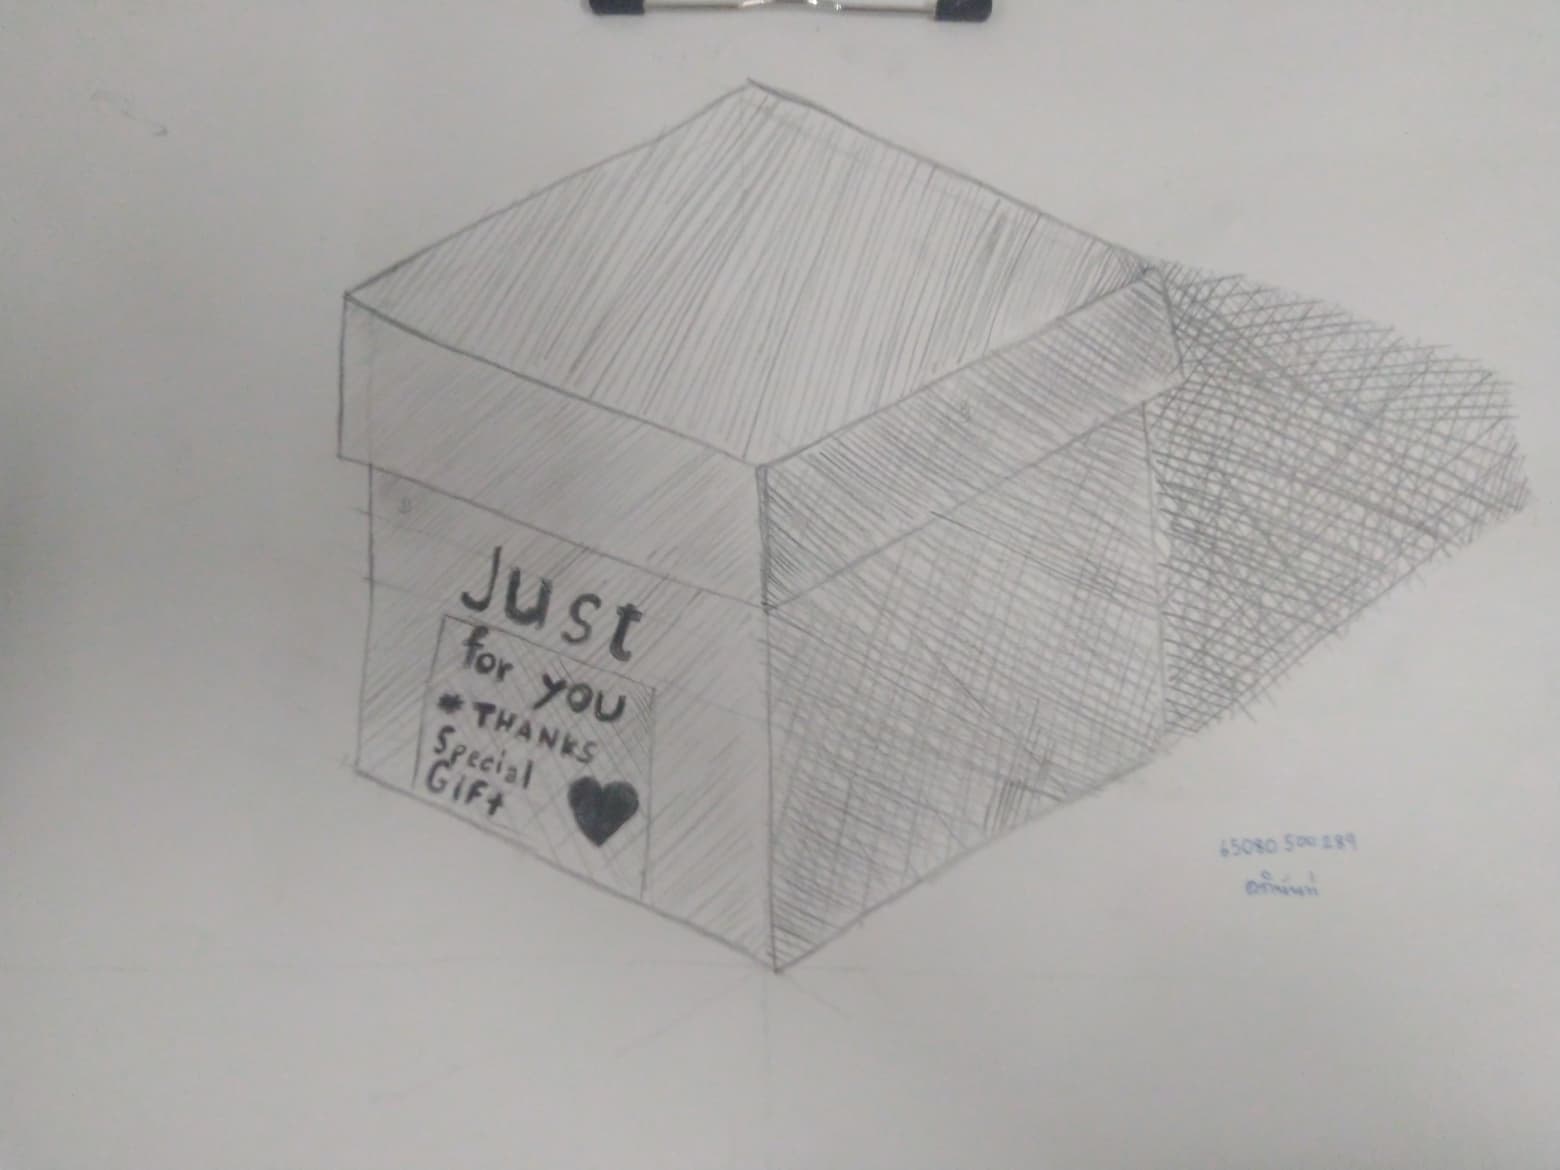 Just
for you
#THANKS
Special
Gift
65080500289